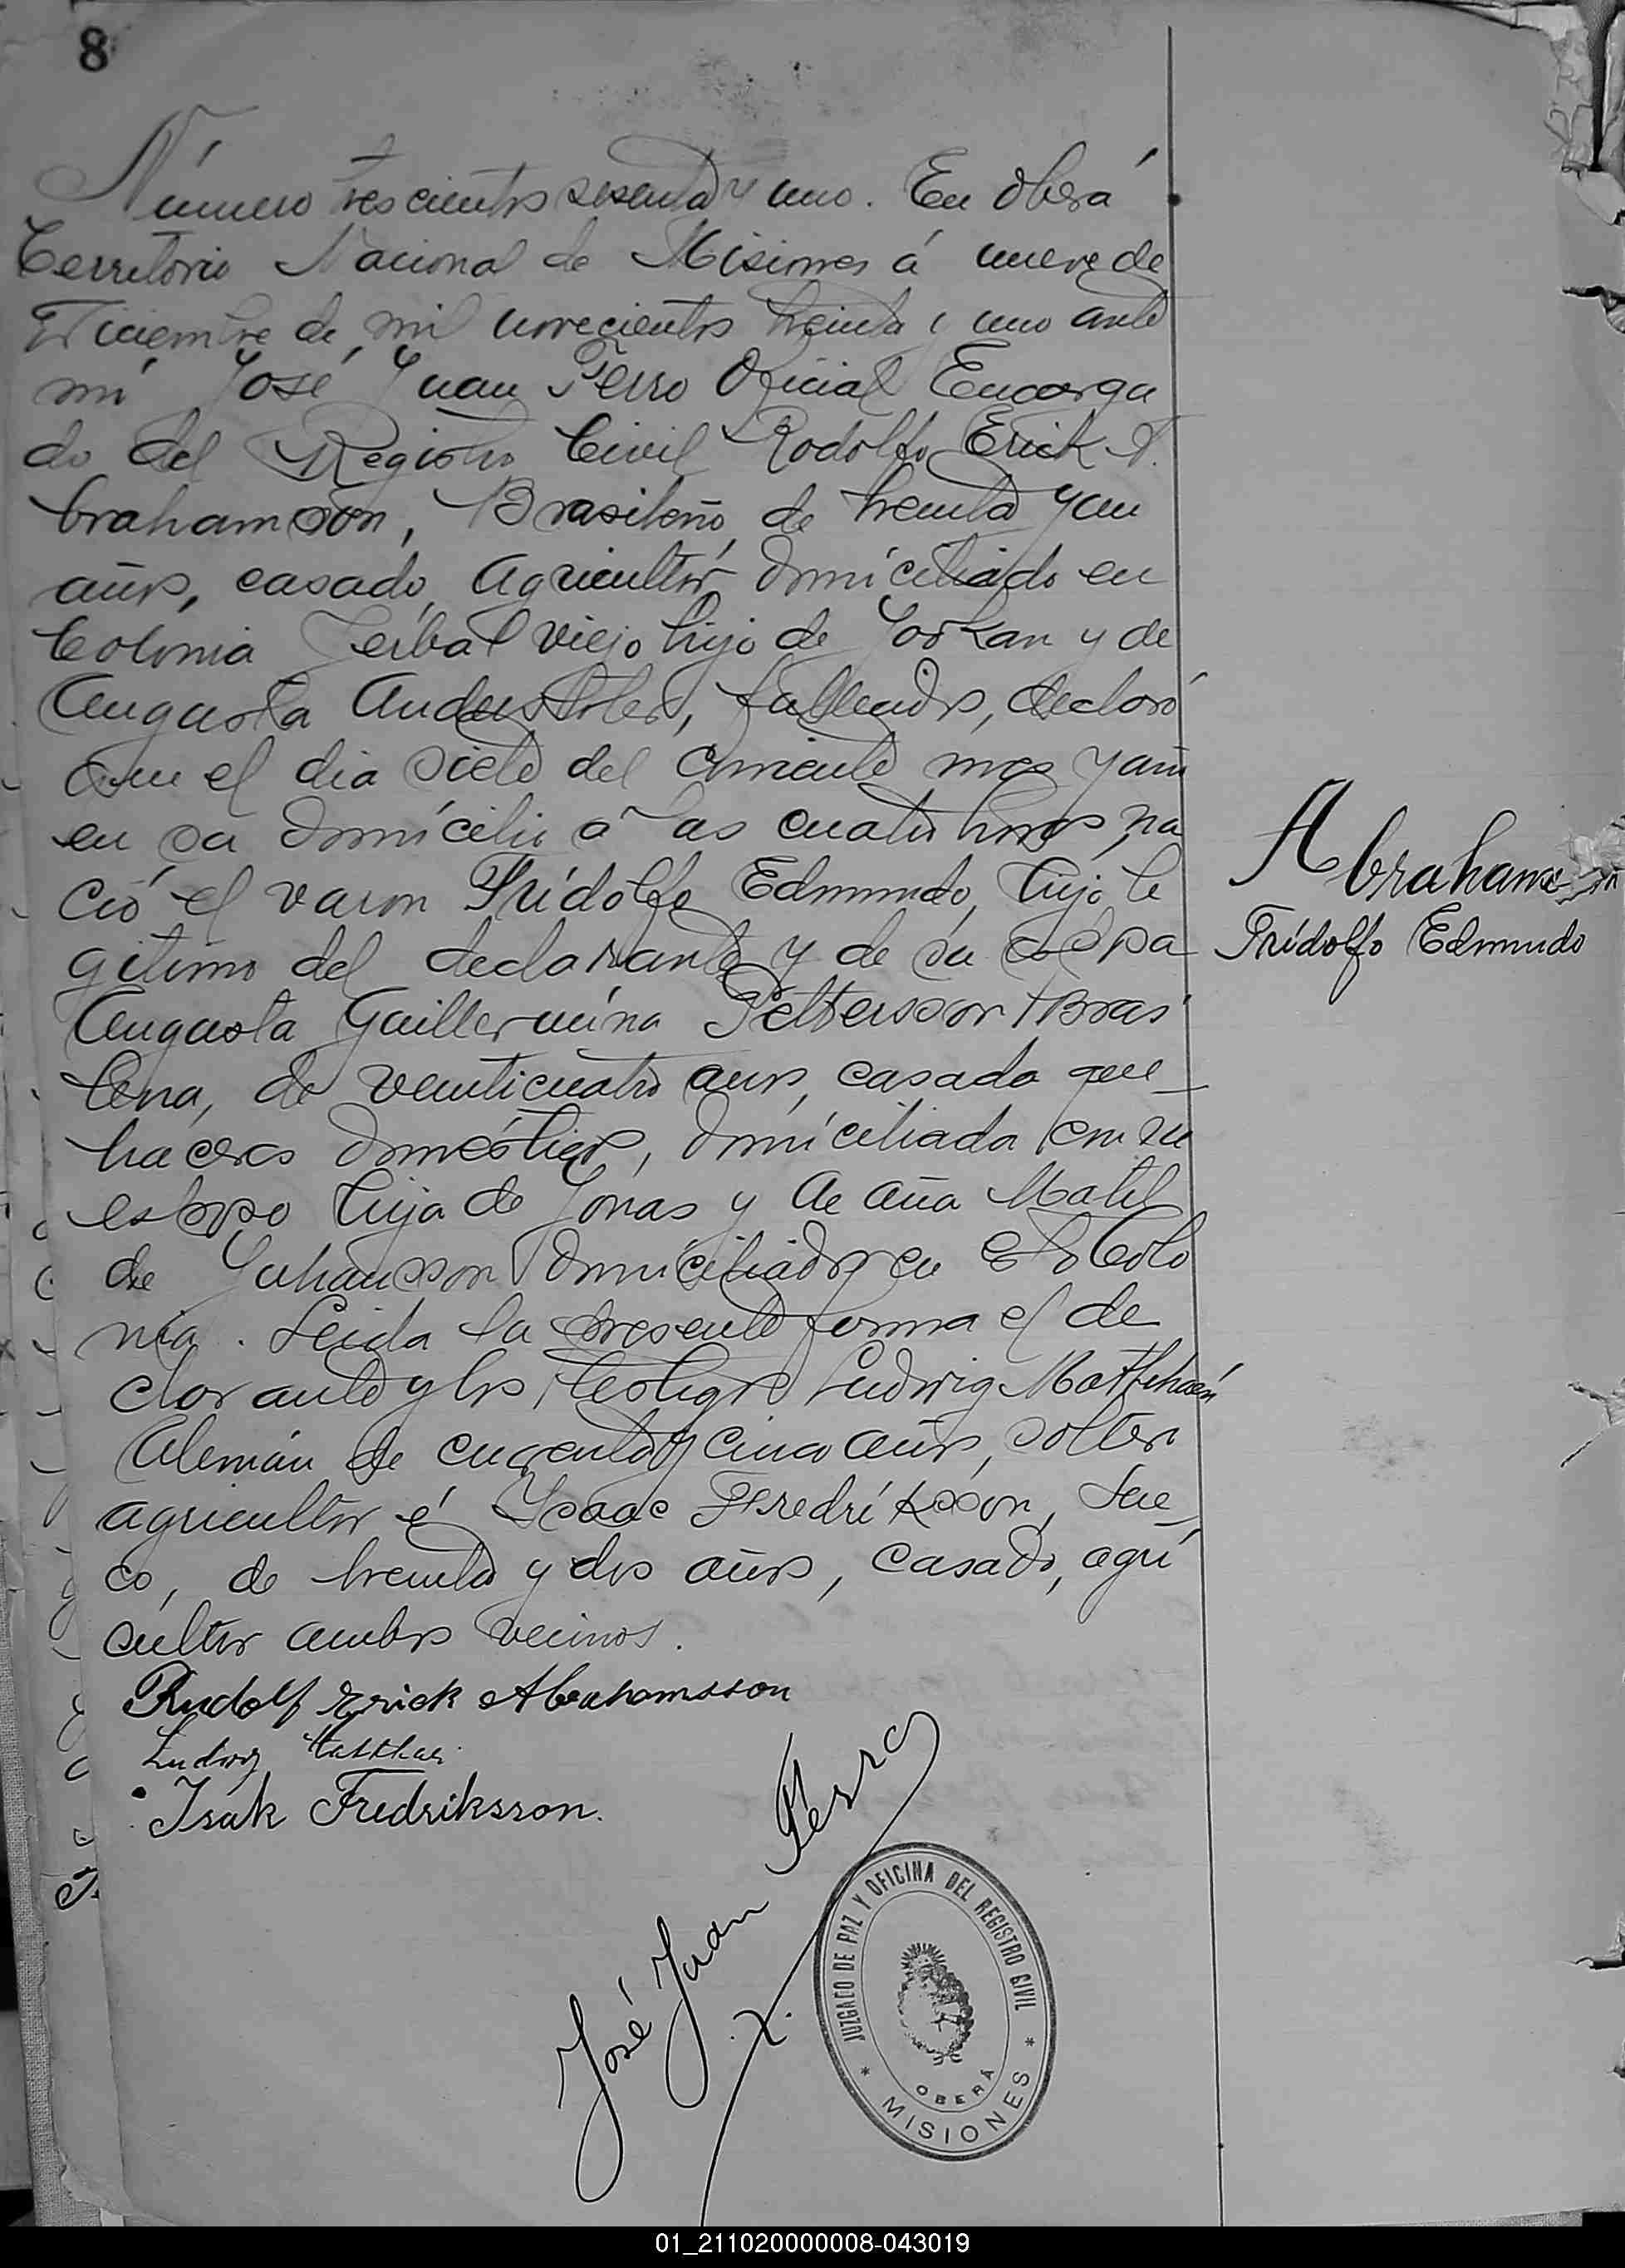 8
Número trescientos sesenta y uno. En Oberá
Territorio Nacional de Misiones á nueve de
Diciembre de mil novecientos treinta y uno ante
mí José Juan Ferro Oficial Encarga
do del Registro Civil Rodolfo Erick A.
brahamson, Brasileño, de treinta y un
años, casado, Agricultor, domiciliado en
Colonia Yerbal viejo hijo de y de
Augusta fallecidos, declaró
Que el dia siete del corriente mes y año
en su domicilio á las cuatro horas, na
ció el varon Fridolfo Edmundo, hijo le
gitimo del declarante y de su esposa
Augusta Guillermina Pettersson, Brasi
lena, de veinticuatro años, casada, que
haceres domésticos, domiciliada con su
esposo hija de Jonas y de Ana Matil
de Juhansson domiciliados en esta Colo
nia. Leida la presente forma el de
clarante y los testigos Ludwig Matthaei
Alemán de cuarenta y cinco años, soltero
agricultor é Isaac Fredriksson, Sue
co, de treinta y dos años, casado, agri
cultor ambos vecinos.
Abrahamson
Fridolfo Edmundo
Rudolf Erick Abrahamsson
Ludwig Matthaei
Isak Fredriksson.
José Juan Ferro
JUZGADO DE PAZ Y OFICINA DEL REGISTRO CIVIL
OBERÁ
* MISIONES *
01_211020000008-043019